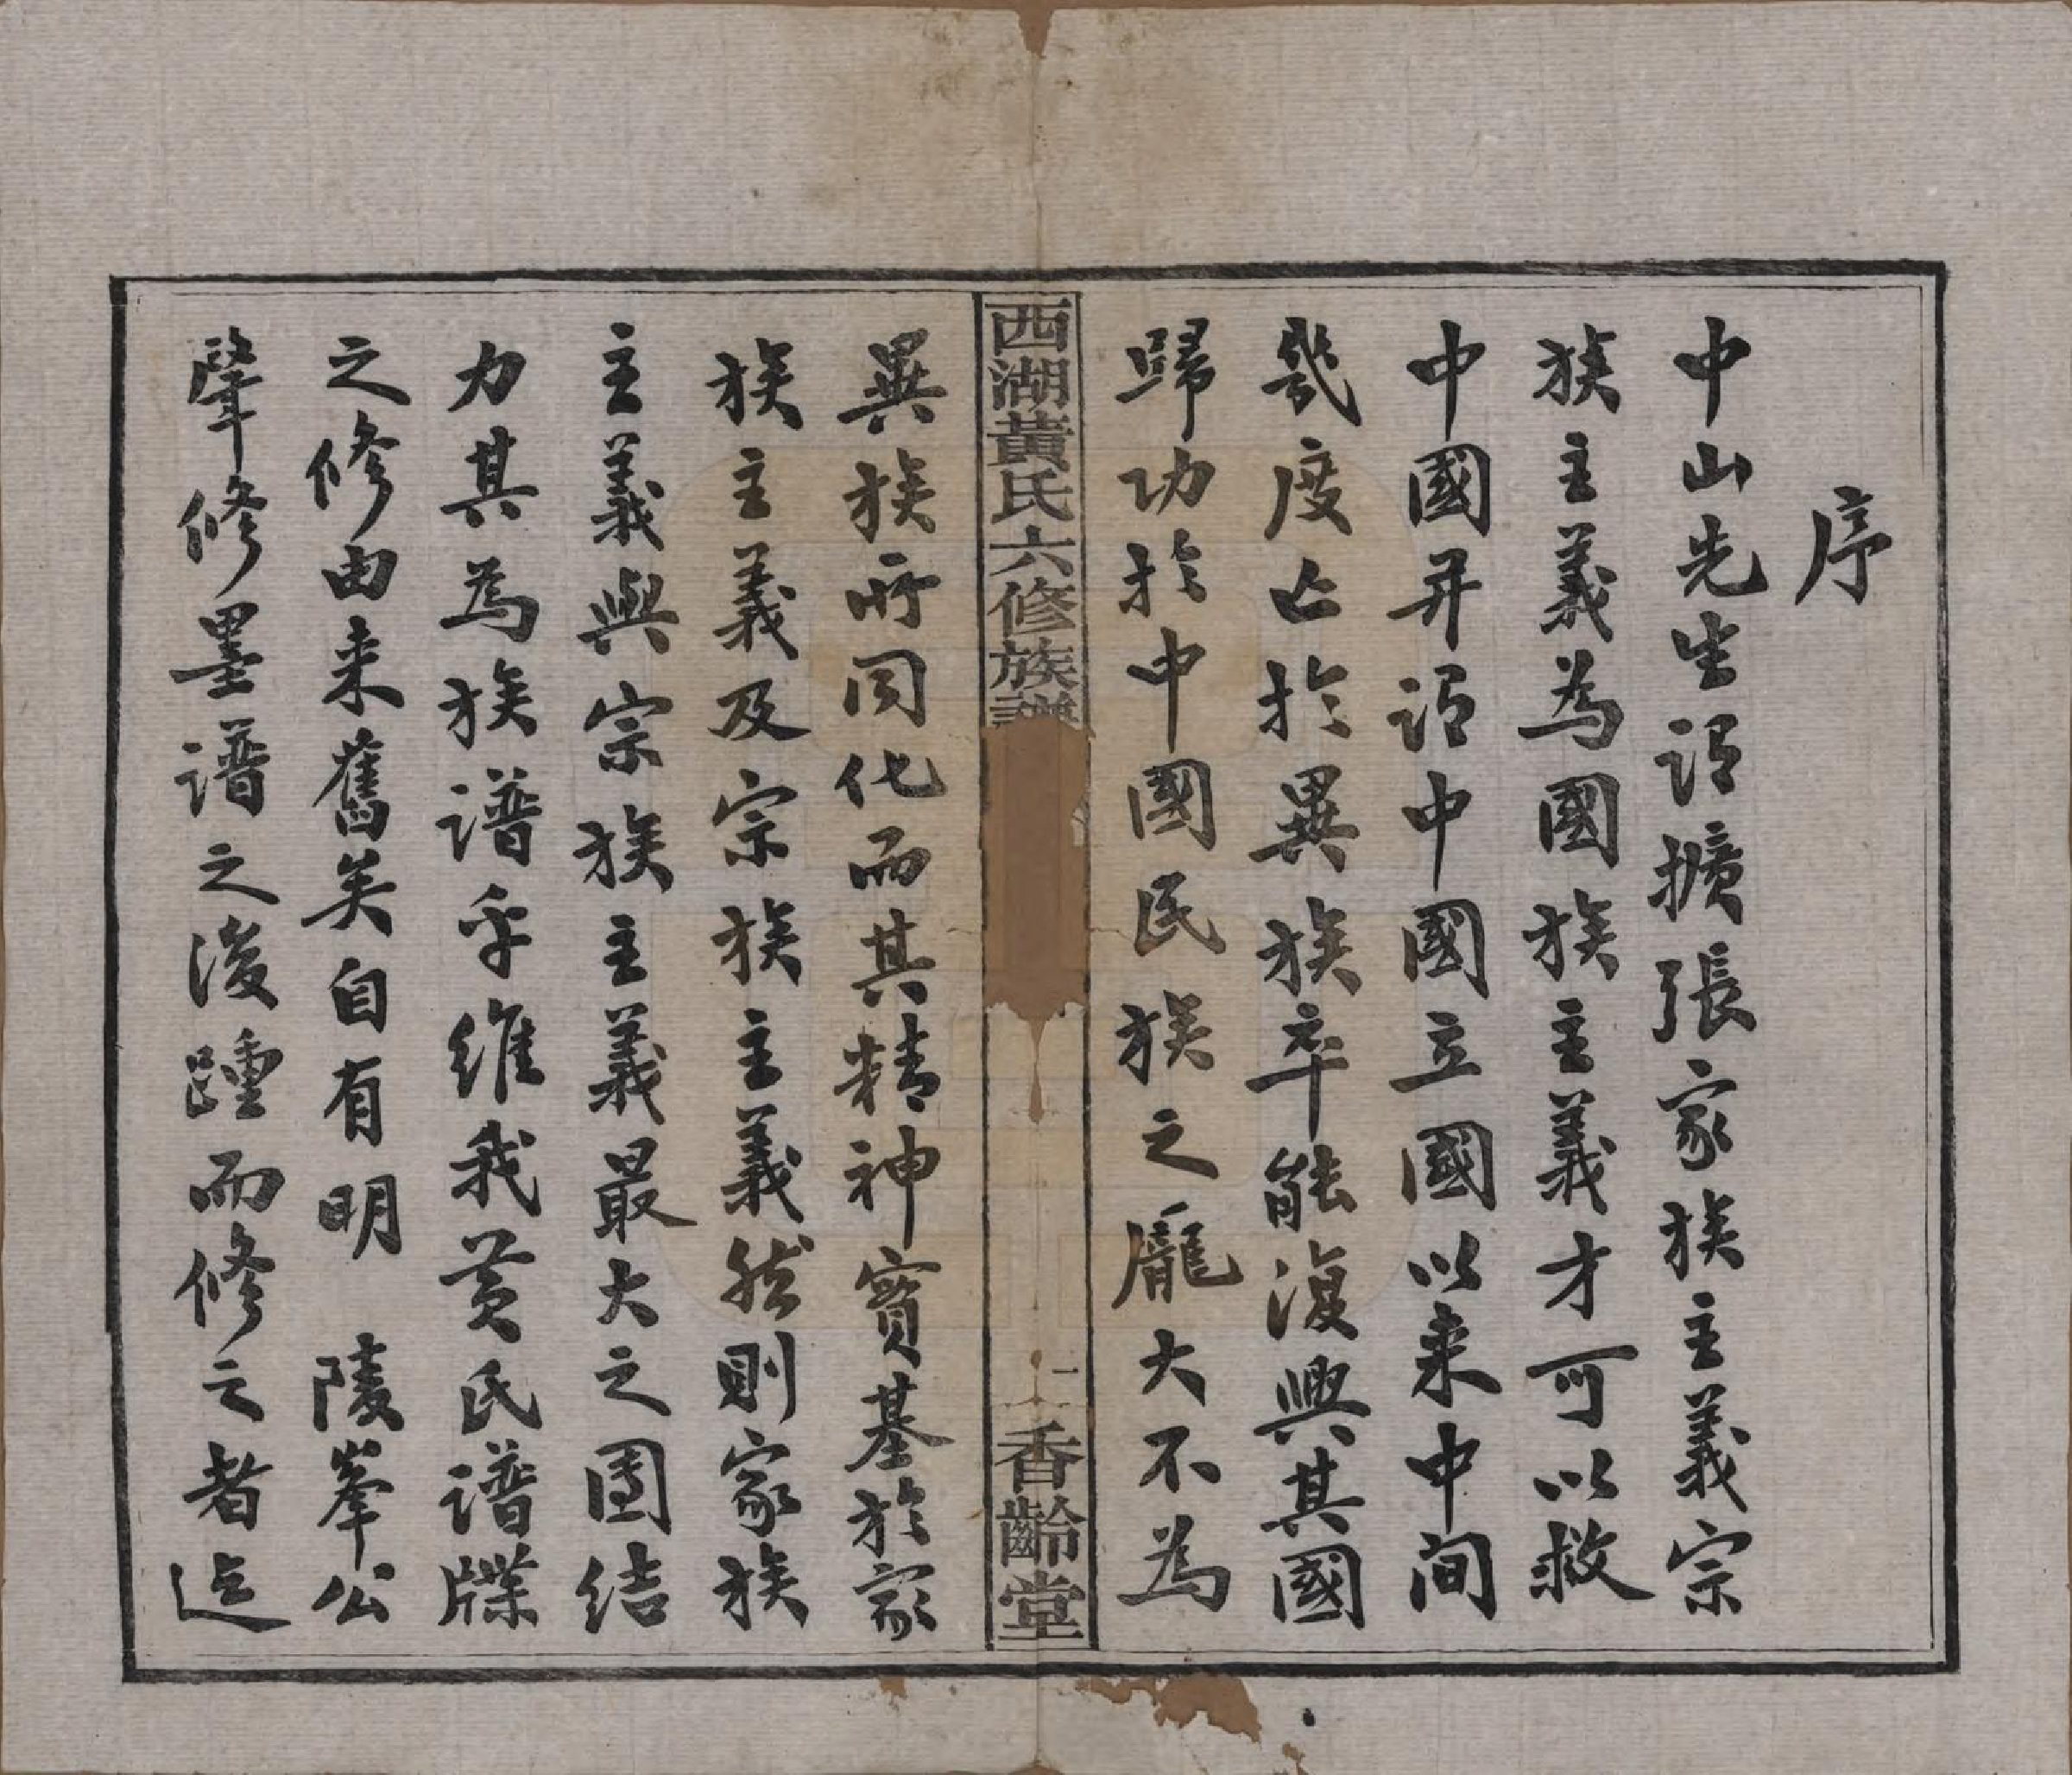 序
中山先生謂擴張家族主義宗
族主義為國族主義才可以救
中國并謂中國立國以来中间
幾度亡於異族卒能復興其國
歸功於中國民族之龐大不為
西湖黃氏六修族譜
一
香齡堂
異族所同化而其精神實基於家
族主義及宗族主義然則家族
主義與宗族主義最大之團结
力其為族譜乎維我黄氏譜牒
之修由来舊矣自有明 陵峯公
肇修墨譜之後踵而修之者迄